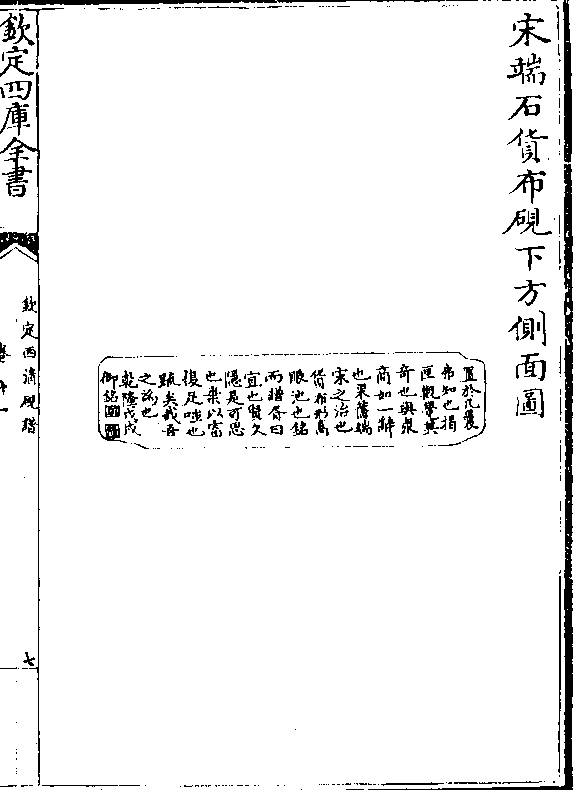 宋端石貨布硯下方側面圖
置於几曩
弗知也揭
匣觀譽其
奇也與衆
商如一辭
也果舊端
宋之治也
貨布形鳥
眼池也銘
而增吝曰
宜也賢久
隱是可思
也棄以富
復足嗤也
顧失我吾
之論也
乾隆戊戌
御銘
欽定四庫全書
欽定西清硯譜
卷十一
七